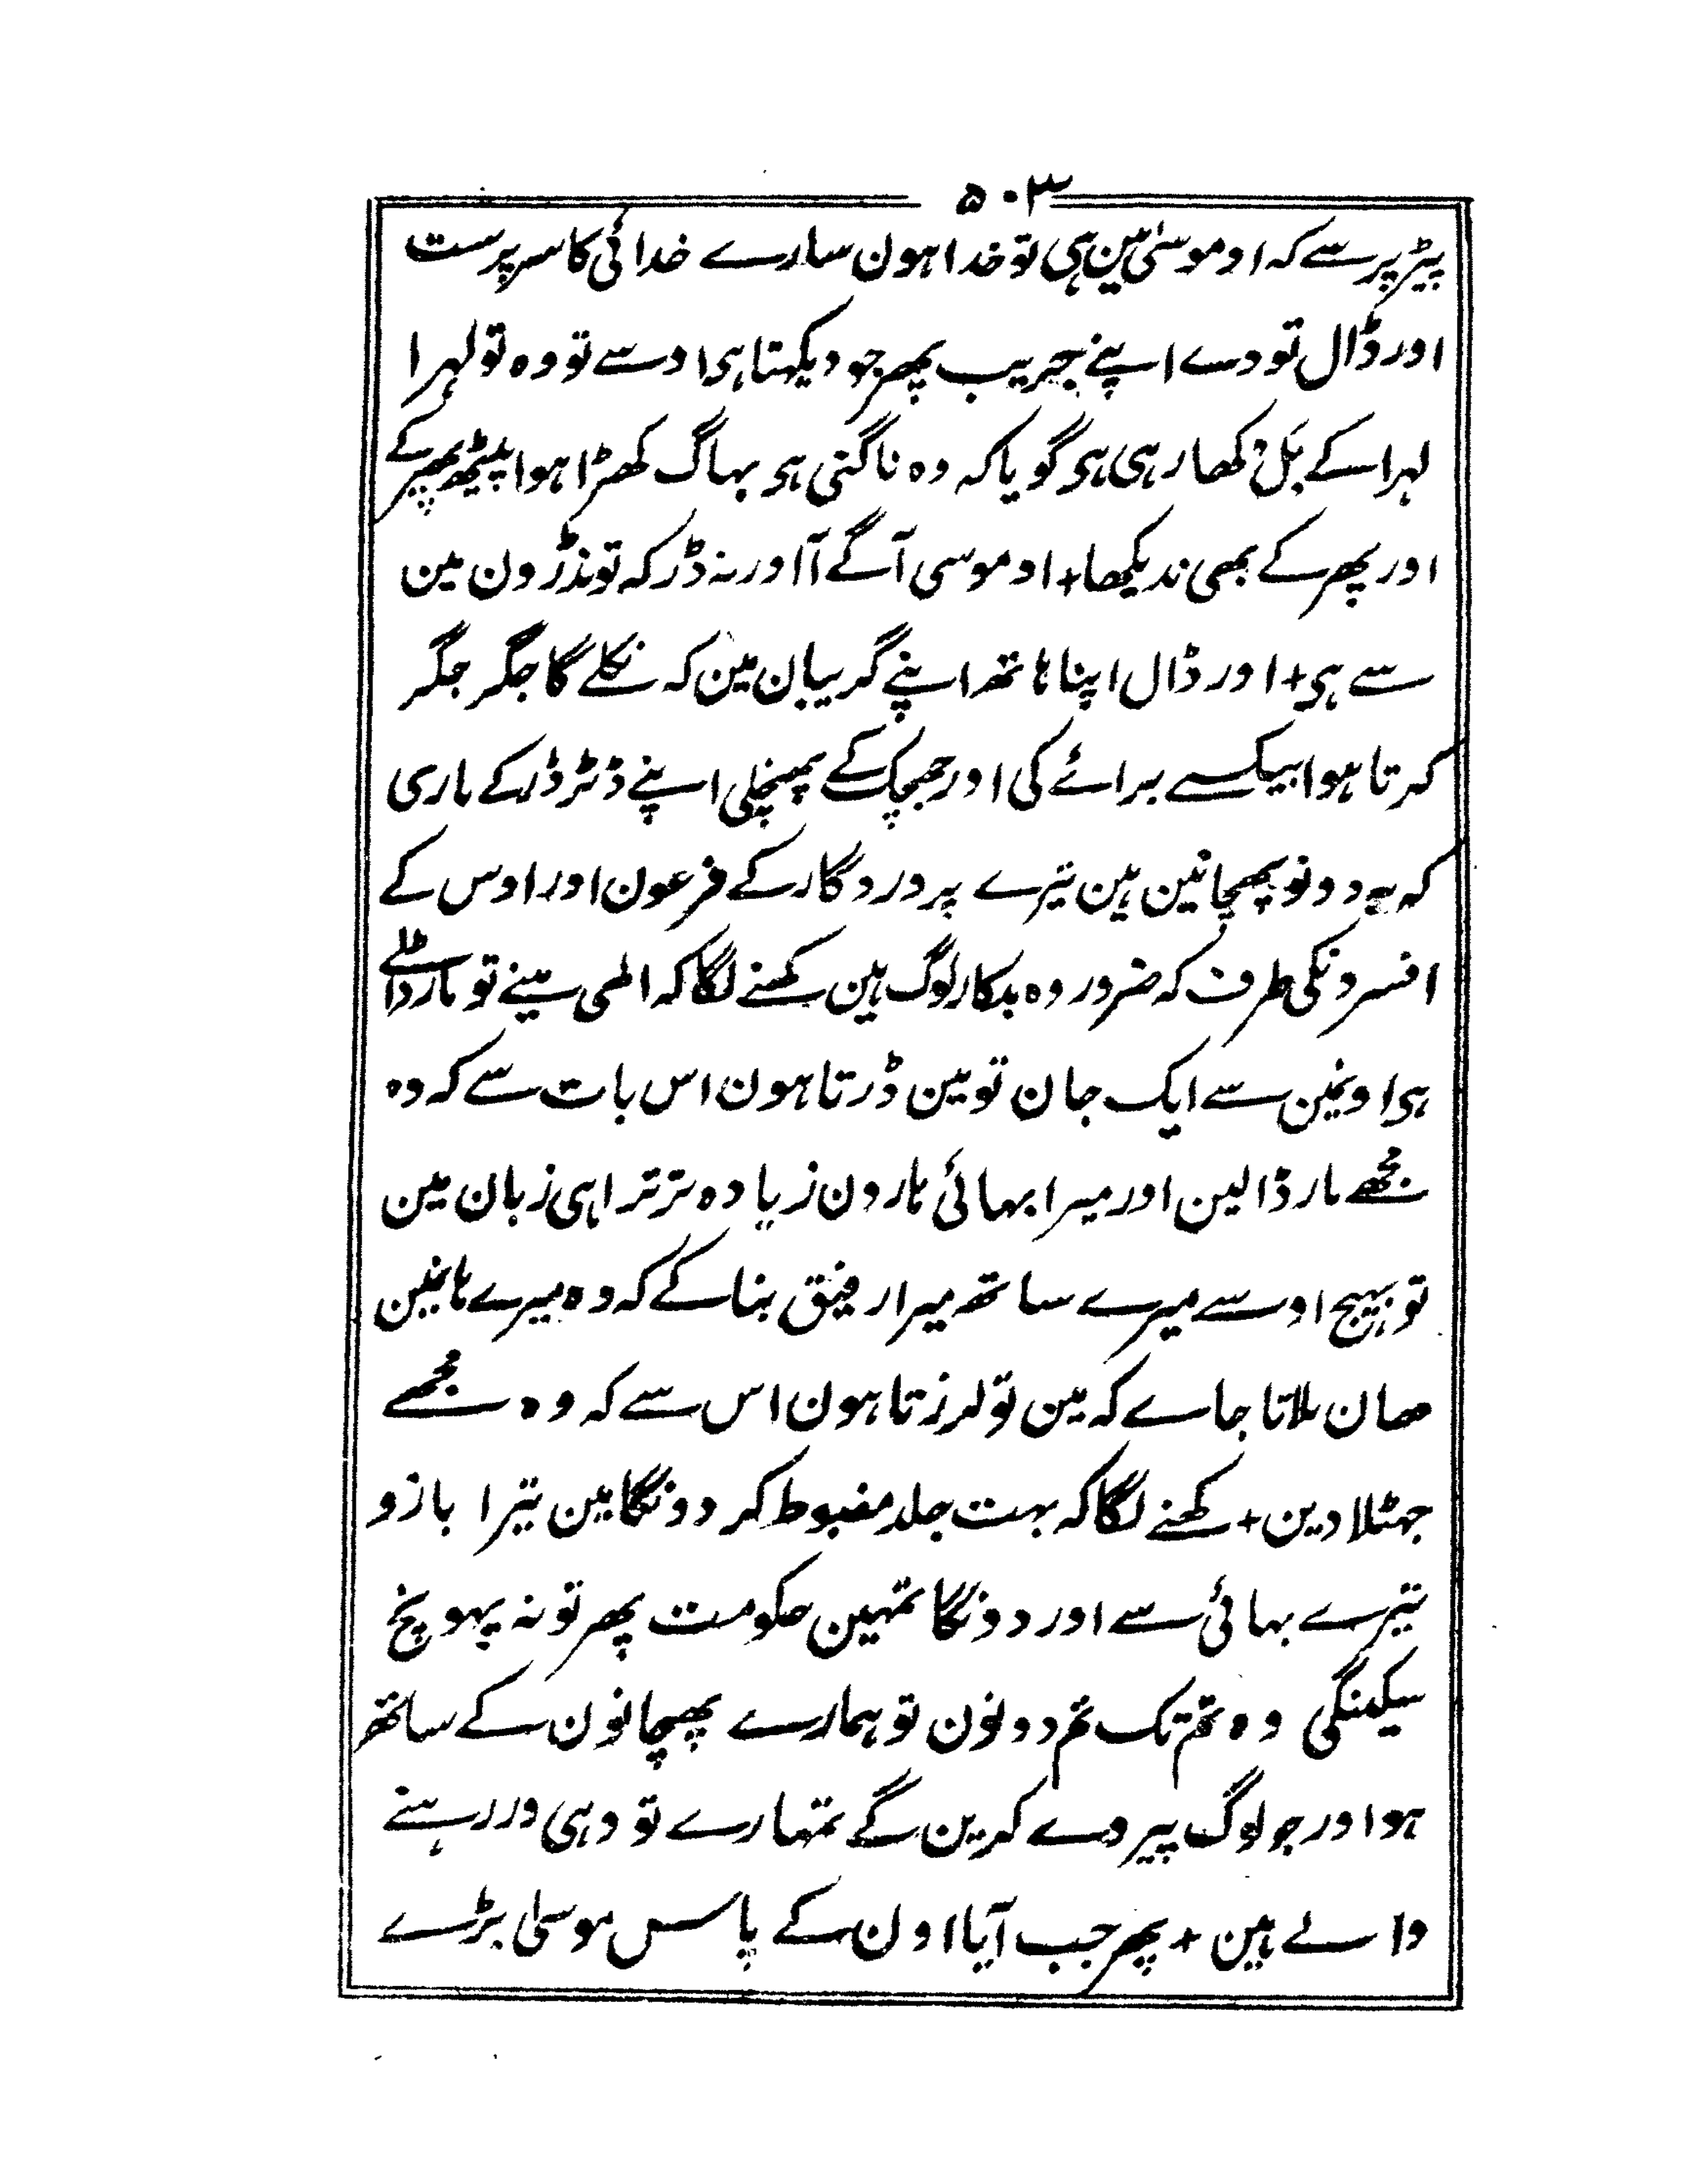 ۵۰۳
پیڑ پر سے کہ او موسیٰ مین ہی تو خدا ہون سارے خدائی کا سرپرست
اور ڈال تو دے اپنے جریب پھر جو دیکہتا ہی اوسے تو وہ تو لہرا
لہرا کے بَل کھا رہی ہی گویا کہ وہ ناگنی ہی بہاگ کھڑا ہوا پیٹھ پھیر کے
اور پھر کے بھی ندیکھا + او موسی آگے آ اور نہ ڈر کہ تو نڈرون مین
سے ہی + اور ڈال اپنا ہاتھ اپنے گریبان مین کہ نکلے گا جگر جگر
کرتا ہوا بیکسے برائے کی اور جھپک کے پھنچلی اپنے ڈنڑ ڈر کے ماری
کہ یہ دونو پھچانین ہین تیرے پروردگار کے فرعون اور اوس کے
افسرونکی طرف کہ ضرور وہ بدکار لوگ ہین کھنے لگا کہ الہی مینے تو مار ڈالے
ہی اونمین سے ایک جان تو مین ڈرتا ہون اس بات سے کہ وہ
مجھے مار ڈالین اور میرا بہائی ہارون زیادہ ترترا ہی زبان مین
تو بہیج اوسے میرے ساتھ میرا رفیق بنا کے کہ وہ میرے ہانمین
ھان ملاتا جاے کہ مین تو لرزتا ہون اس سے کہ وہ مجھے
جہٹلا دین + کھنے لگا کہ بہت جلد مضبوط کر دونگا مین تیرا بازو
تیرے بہائی سے اور دونگا تمہین حکومت پھر تو نہ پہونچ
سکینگی وہ تم تک تم دونون تو ہمارے پھچانون کے ساتھ
ہو اور جو لوگ پیروے کرین گے تمھارے تو وہی ور رہنے
والے ہین + پھر جب آیا اون کے پاس موسیٰ بڑے